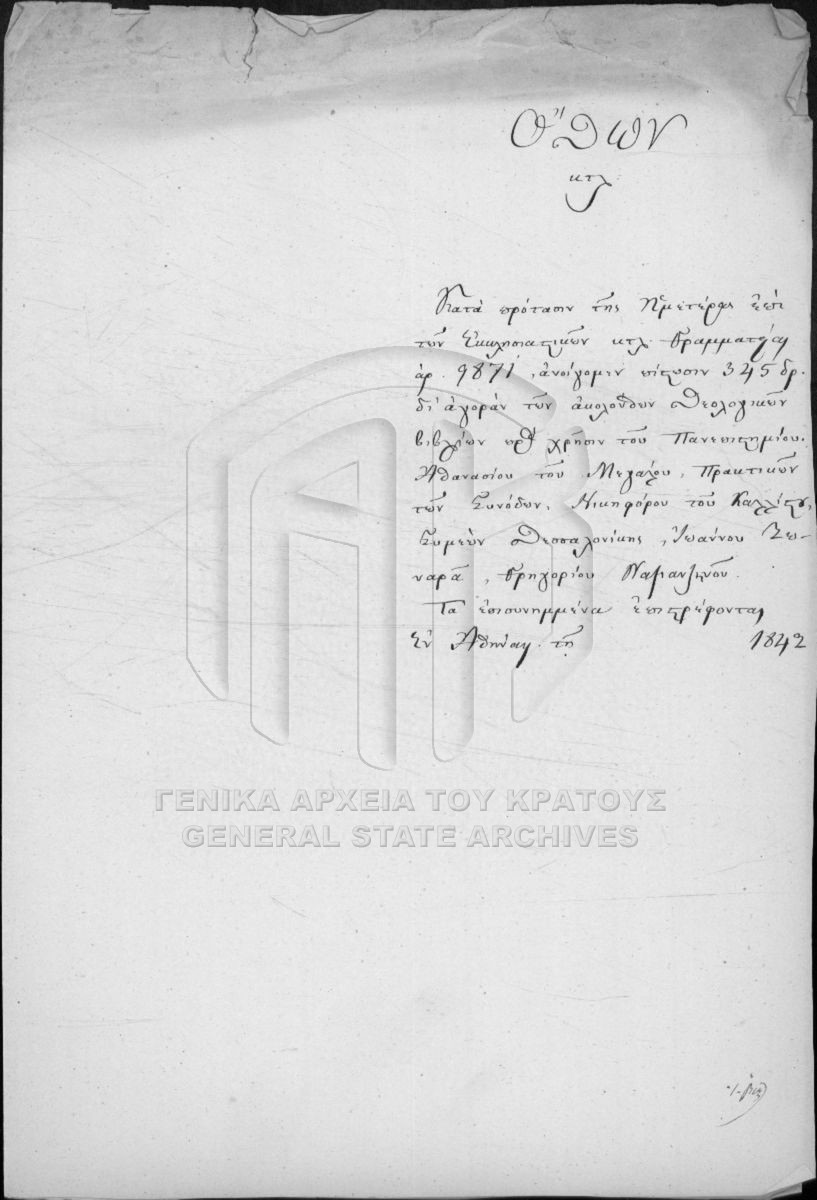 Ὄθων
κτλ.
Κατὰ πρότασιν τῆς Ἡμετέρας ἐπὶ
τῶν Ἐκκλησιαστικῶν κτλ. Γραμματείας
ἀρ. 9871, ἀνοίγομεν πίστωσιν 345 δρ.
δι' ἀγορὰν τῶν ἀκολούθων Θεολογικῶν
βιβλίων πρὸς χρῆσιν τοῦ Πανεπιστημίου.
Ἀθανασίου τοῦ Μεγάλου, Πρακτικῶν
τῶν Συνόδων, Νικηφόρου τοῦ Καλλίστου,
Συμεὼν Θεσσαλονίκης, Ἰωάννου Ζω-
ναρᾶ, Γρηγορίου Ναζιανζηνοῦ.
Τὰ ἐπισυνημμένα ἐπιστρέφονται
Ἐν Ἀθήναις τῇ 1842
ΓΕΝΙΚΑ ΑΡΧΕΙΑ ΤΟΥ ΚΡΑΤΟΥΣ
GENERAL STATE ARCHIVES